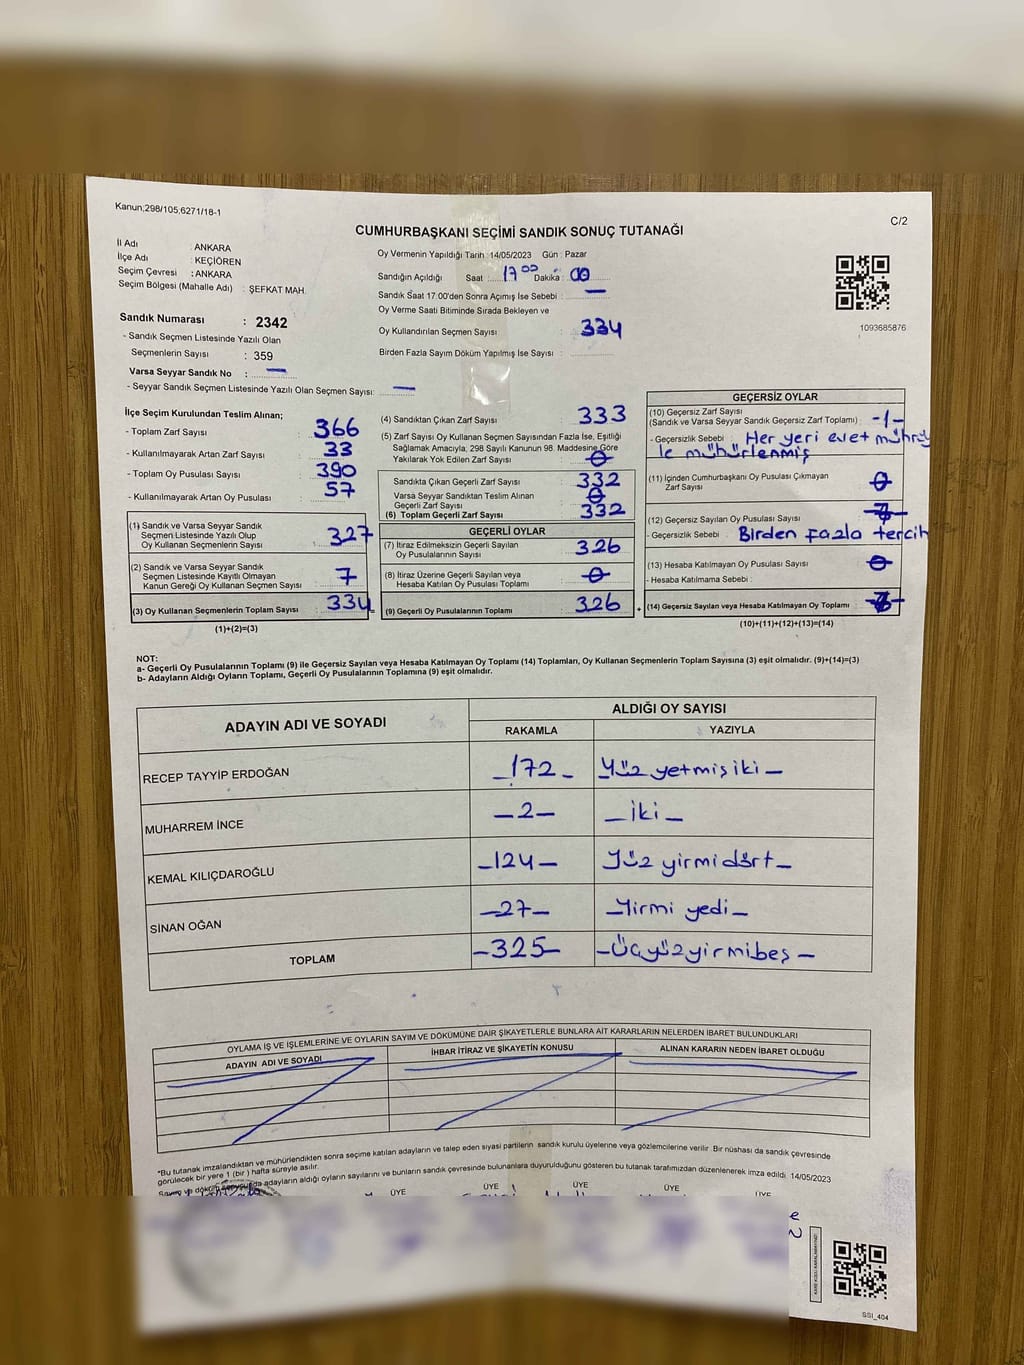 Kanun;298/105;6271/18-1
C/2
CUMHURBAŞKANI SEÇİMİ SANDIK SONUÇ TUTANAĞI
İl Adı : ANKARA
İlçe Adı : KEÇİÖREN
Seçim Çevresi : ANKARA
Seçim Bölgesi (Mahalle Adı) : ŞEFKAT MAH.
Sandık Numarası : 2342
- Sandık Seçmen Listesinde Yazılı Olan
Seçmenlerin Sayısı : 359
Varsa Seyyar Sandık No : —
- Seyyar Sandık Seçmen Listesinde Yazılı Olan Seçmen Sayısı: —
Oy Vermenin Yapıldığı Tarih :14/05/2023 Gün : Pazar
Sandığın Açıldığı Saat : 17 00 Dakika : 00
Sandık Saat 17:00'den Sonra Açımış İse Sebebi : —
Oy Verme Saati Bitiminde Sırada Bekleyen ve
Oy Kullandırılan Seçmen Sayısı : 334
Birden Fazla Sayım Döküm Yapılmış İse Sayısı :
1093685876
İlçe Seçim Kurulundan Teslim Alınan;
- Toplam Zarf Sayısı : 366
- Kullanılmayarak Artan Zarf Sayısı : 33
- Toplam Oy Pusulası Sayısı : 390
- Kullanılmayarak Artan Oy Pusulası : 57
(1) Sandık ve Varsa Seyyar Sandık
Seçmen Listesinde Yazılı Olup
Oy Kullanan Seçmenlerin Sayısı : 327
(2) Sandık ve Varsa Seyyar Sandık
Seçmen Listesinde Kayıtlı Olmayan
Kanun Gereği Oy Kullanan Seçmen Sayısı : 7
(3) Oy Kullanan Seçmenlerin Toplam Sayısı : 334
(1)+(2)=(3)
(4) Sandıktan Çıkan Zarf Sayısı : 333
(5) Zarf Sayısı Oy Kullanan Seçmen Sayısından Fazla İse, Eşitliği
Sağlamak Amacıyla; 298 Sayılı Kanunun 98. Maddesine Göre
Yakılarak Yok Edilen Zarf Sayısı : 0
Sandıkta Çıkan Geçerli Zarf Sayısı : 332
Varsa Seyyar Sandıktan Teslim Alınan
Geçerli Zarf Sayısı : 0
(6) Toplam Geçerli Zarf Sayısı : 332
GEÇERLİ OYLAR
(7) İtiraz Edilmeksizin Geçerli Sayılan
Oy Pusulalarının Sayısı : 326
(8) İtiraz Üzerine Geçerli Sayılan veya
Hesaba Katılan Oy Pusulası Toplamı : 0
= (9) Geçerli Oy Pusulalarının Toplamı : 326
GEÇERSİZ OYLAR
(10) Geçersiz Zarf Sayısı
(Sandık ve Varsa Seyyar Sandık Geçersiz Zarf Toplamı) : -1-
- Geçersizlik Sebebi : Her yeri evet mührü
le mühürlenmiş
(11) İçinden Cumhurbaşkanı Oy Pusulası Çıkmayan
Zarf Sayısı : 0
(12) Geçersiz Sayılan Oy Pusulası Sayısı :
- Geçersizlik Sebebi : Birden fazla tercih
(13) Hesaba Katılmayan Oy Pusulası Sayısı : 0
- Hesaba Katılmama Sebebi :
+ (14) Geçersiz Sayılan veya Hesaba Katılmayan Oy Toplamı :
(10)+(11)+(12)+(13)=(14)
NOT:
a- Geçerli Oy Pusulalarının Toplamı (9) ile Geçersiz Sayılan veya Hesaba Katılmayan Oy Toplamı (14) Toplamları, Oy Kullanan Seçmenlerin Toplam Sayısına (3) eşit olmalıdır. (9)+(14)=(3)
b- Adayların Aldığı Oyların Toplamı, Geçerli Oy Pusulalarının Toplamına (9) eşit olmalıdır.
ADAYIN ADI VE SOYADI
ALDIĞI OY SAYISI
RAKAMLA YAZIYLA
RECEP TAYYİP ERDOĞAN -172- Yüz yetmişiki-
MUHARREM İNCE -2- -iki-
KEMAL KILIÇDAROĞLU -124- Yüz yirmidört-
SİNAN OĞAN -27- -Yirmi yedi-
TOPLAM -325- -Üçyüzyirmibeş-
OYLAMA İŞ VE İŞLEMLERİNE VE OYLARIN SAYIM VE DÖKÜMÜNE DAİR ŞİKAYETLERLE BUNLARA AİT KARARLARIN NELERDEN İBARET BULUNDUKLARI
ADAYIN ADI VE SOYADI İHBAR İTİRAZ VE ŞİKAYETİN KONUSU ALINAN KARARIN NEDEN İBARET OLDUĞU
*Bu tutanak imzalandıktan ve mühürlendikten sonra seçime katılan adayların ve talep eden siyasi partilerin sandık kurulu üyelerine veya gözlemcilerine verilir. Bir nüshası da sandık çevresinde
görülecek bir yere 1 (bir) hafta süreyle asılır.
Sayım ve döküm sonucunda adayların aldığı oyların sayılarını ve bunların sandık çevresinde bulunanlara duyurulduğunu gösteren bu tutanak tarafımızdan düzenlenerek imza edildi. 14/05/2023
ÜYE ÜYE ÜYE ÜYE ÜYE
SSİ_404